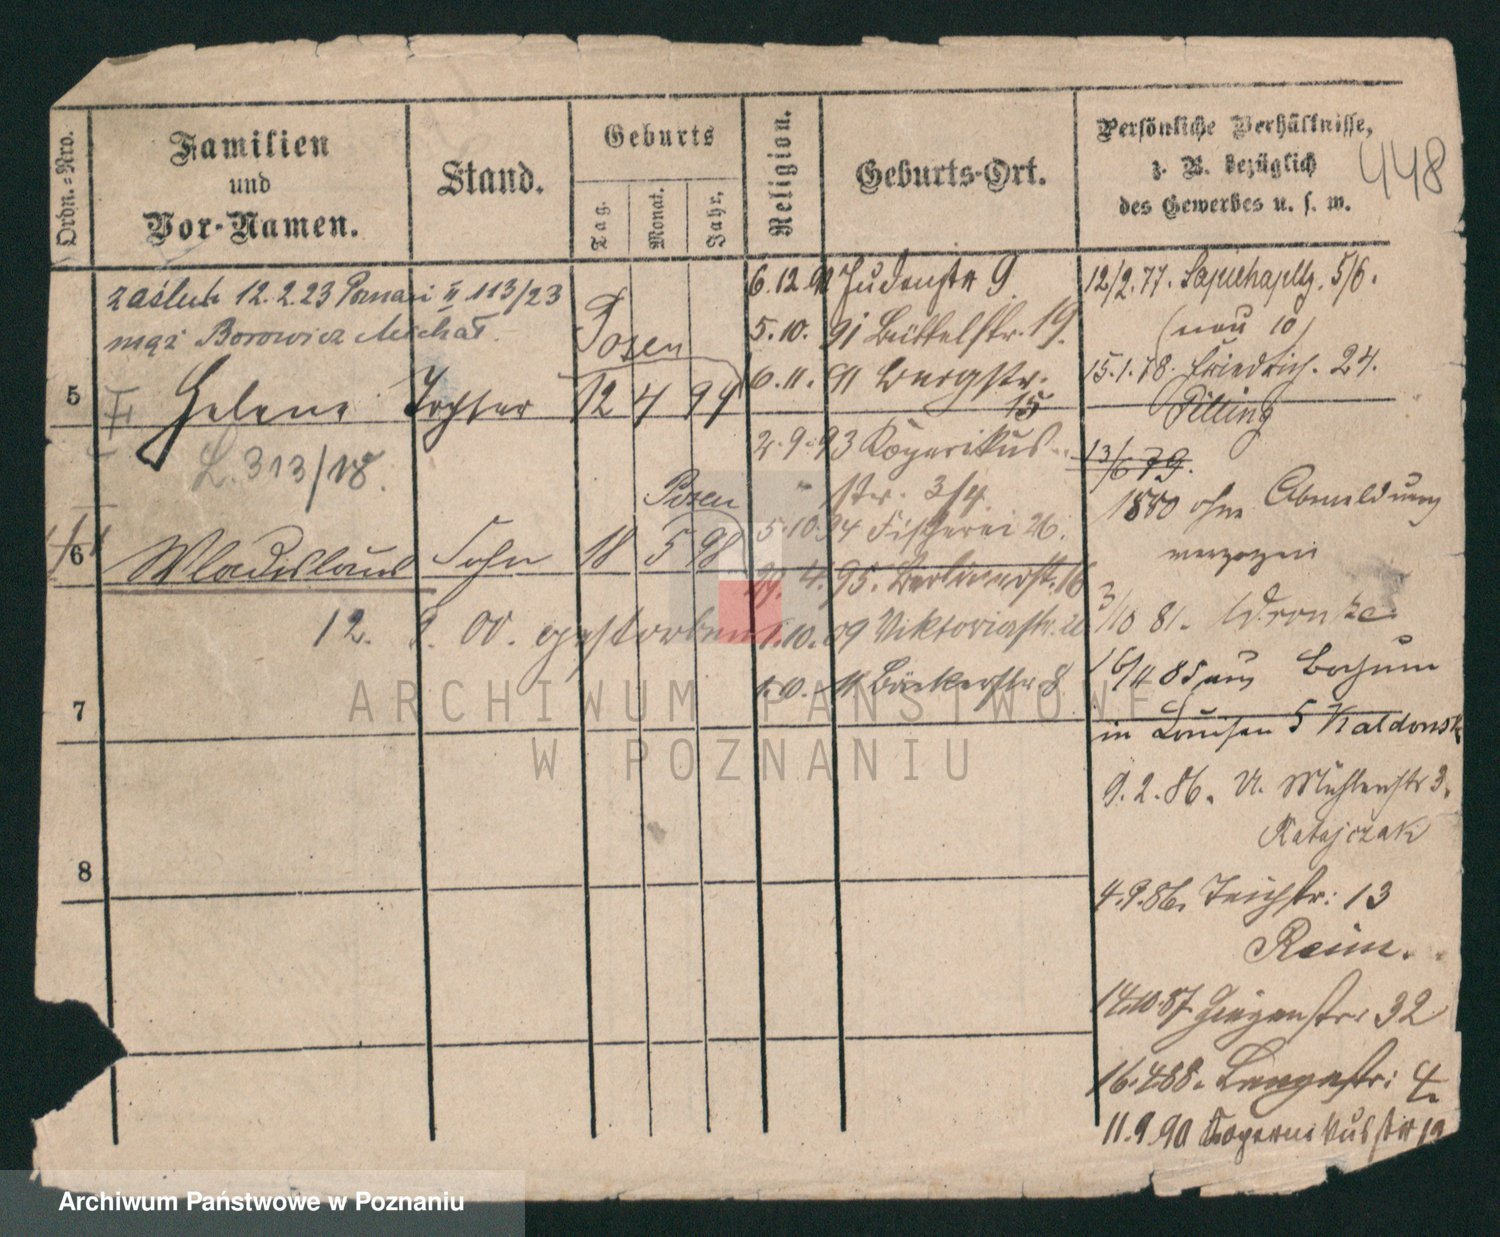 Ordn.-Nro.
Familien
und
Vor-Namen.
Stand.
Geburts
Tag.
Monat.
Jahr.
Religion.
Geburts-Ort.
Persönliche Verhältnisse,
z. B. bezüglich
des Gewerbes u. s. w.
448
12. 2. 23 Poznań II 113/23
mąż Borowicz Michał.
5
Helene Tochter Posen 12 4 94
L. 313/18.
6
Wladislaus Sohn Posen 18 5 98
12. 9. 00. gestorben
7
8
6. 12. 90 Judenstr 9
5. 10. 91 Büttelstr. 19.
6. 11. 91 Bergstr. 15
2. 9. 93 Kopernikus-
str. 3/4.
5. 10. 94 Fischerei 26.
4. 95. Berlinerstr. 16
1. 10. 09 Viktoriastr.
1. 10. 11 Bäckerstr 8
12/2. 77. Sapiehapltz. 5/6.
(neu 10)
15. 1. 78. Friedrich. 24.
Pilling
13/6 79.
1880 ohne Abmeldung
verzogen
3/10 81. Wronke
16/4 85 aus Bochum
in Louisen 5
9. 2. 86. U. Mühlenstr 3.
Ratajczak
4. 9. 86. Teichstr: 13
Reim.
14. 10. 87 32
16. 4. 88. Langestr: 4.
11. 9. 90 Kopernikusstr 19
ARCHIWUM PAŃSTWOWE
W POZNANIU
Archiwum Państwowe w Poznaniu